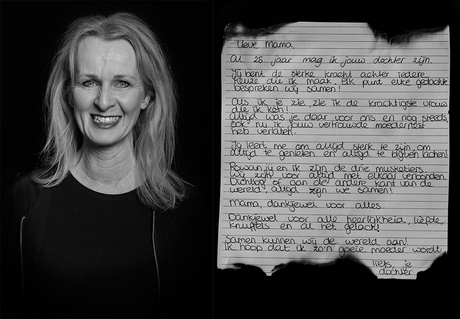 Lieve Mama,
Al 25 jaar mag ik jouw dochter zijn.
Jij bent de sterke kracht achter iedere
keuze die ik maak. Elk punt elke gedachte
bespreken wij samen!
Als ik je zie, zie ik de krachtigste vrouw
die ik ken!
Altijd was je daar voor ons en nog steeds,
ook nu ik jouw vertrouwde moedernest
heb verlaten.
Jij leert me om altijd sterk te zijn, om
altijd te genieten en altijd te blijven lachen!
Rowan, jij en ik zijn de drie musketiers
wij zijn voor altijd met elkaar verbonden.
Dichtbij of aan de andere kant van de
wereld, altijd zijn we samen!
Mama, dankjewel voor alles.
Dankjewel voor alle heerlijkheid, liefde,
knuffels en al het gelach!
Samen kunnen wij de wereld aan!
Ik hoop dat ik zo'n goeie moeder wordt
liefs, je
dochter